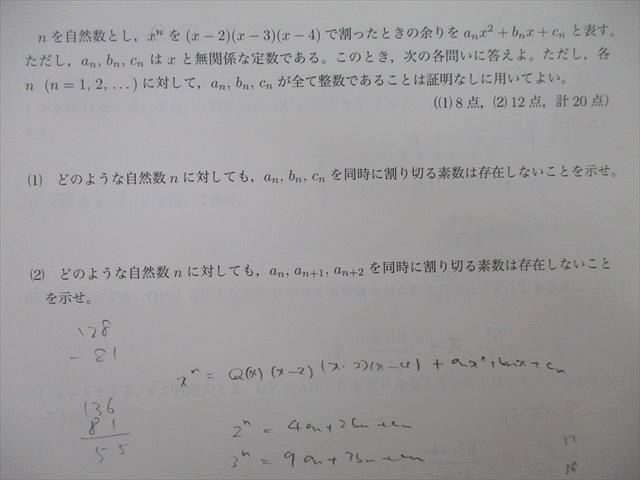 nを自然数とし，xⁿ を (x−2)(x−3)(x−4) で割ったときの余りを aₙx²+bₙx+cₙ と表す。
ただし，aₙ, bₙ, cₙ は x と無関係な定数である。このとき，次の各問いに答えよ。ただし，各
n (n=1, 2, ...) に対して，aₙ, bₙ, cₙ が全て整数であることは証明なしに用いてよい。
((1) 8点, (2) 12点, 計20点)
(1) どのような自然数 n に対しても，aₙ, bₙ, cₙ を同時に割り切る素数は存在しないことを示せ。
(2) どのような自然数 n に対しても，aₙ, aₙ₊₁, aₙ₊₂ を同時に割り切る素数は存在しないこと
を示せ。
128
− 81
xⁿ = Q(x)(x−2)(x−3)(x−4) + aₙx²+bₙx+cₙ
136
81
55
2ⁿ = 4aₙ+2bₙ+cₙ
3ⁿ = 9aₙ+3bₙ+cₙ